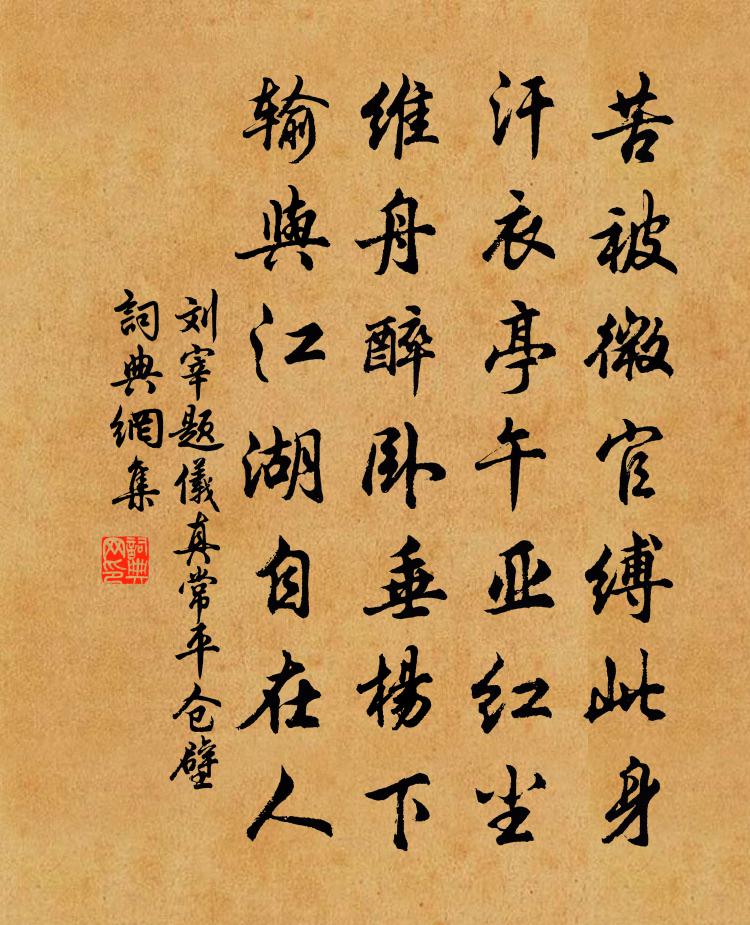 苦被微官縛此身
汗衣亭午亚红尘
维舟醉卧垂楊下
输與江湖自在人
刘宰题儀真常平仓壁
詞典網集
詞典
网印